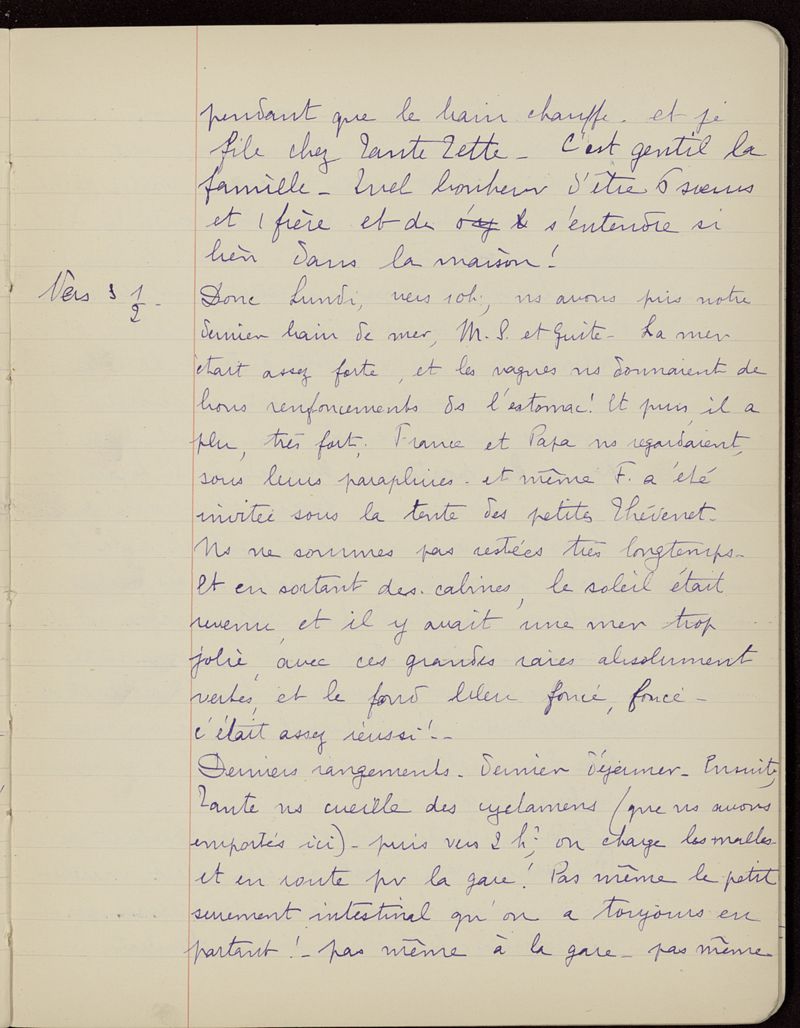 pendant que le bain chauffe. et je
file chez Tante Zette - C'est gentil la
famille - Quel bonheur d'être 6 sœurs
et 1 frère et de s'entendre si
bien dans la maison!
Vers 3 1/2 -
Donc Lundi, vers 10h;, ns avons pris notre
dernier bain de mer, M. S. et Guite - La mer
était assez forte, et les vagues ns donnaient de
bons renfoncements ds l'estomac! Et puis, il a
plu, très fort; France et Papa ns regardaient,
sous leurs parapluies - et même F. a été
invitée sous la tente des petites Thévenet -
Ns ne sommes pas restées très longtemps -
Et en sortant des cabines, le soleil était
revenu, et il y avait une mer trop
jolie, avec ces grandes raies absolument
vertes, et le fond bleu foncé, foncé -
c'était assez réussi! -
Derniers rangements - dernier déjeuner - Ensuite,
Tante ns cueille des cyclamens (que ns avons
emportés ici) - puis vers 2 h½, on charge les malles -
et en route pr la gare! Pas même le petit
serrement intestinal qu'on a toujours en
partant! - pas même à la gare - pas même